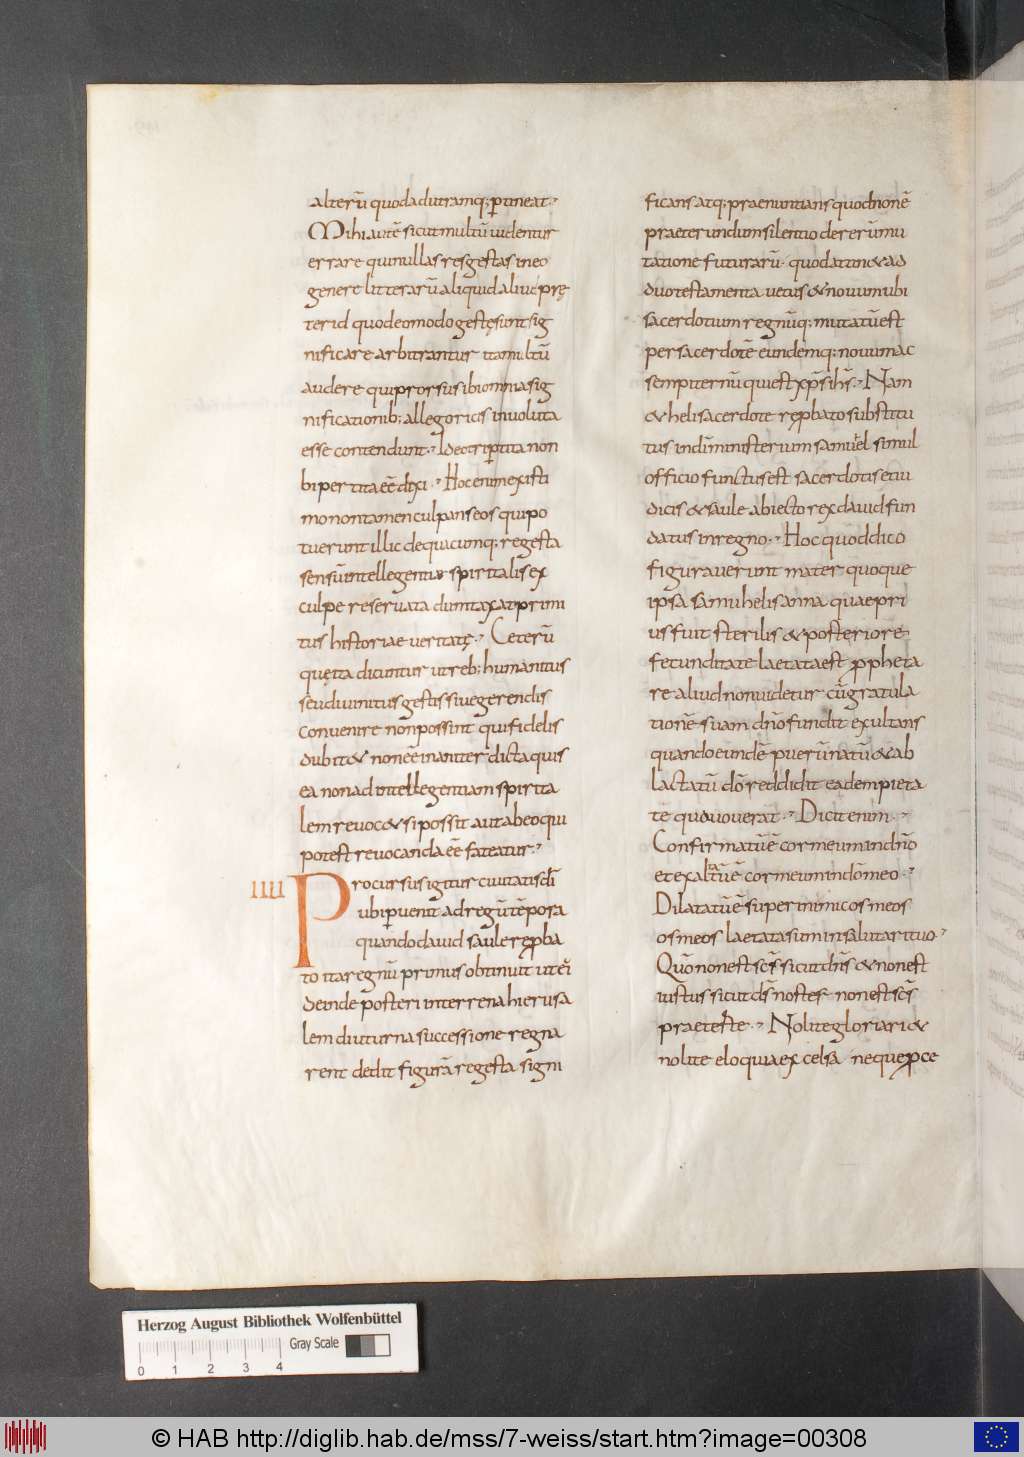 alterū quod ad utramq; ꝑtineat.
Mihi autē sicut multū uidentur
errare qui nullas res gestas in eo
genere litterarū aliquid aliud prę
ter id quod eo modo gestę sunt sig
nificare arbitrantur ita multū
audere qui prorsus ibi omnia sig
nificationib; allegoricis inuoluta
esse contendunt. Ideo triꝑtita non
bipertita eē dixi. Hoc enim existi
mo non tamen culpans eos qui po
tuerunt illic de quacumq; re gesta
sensū intellegentiae spiritalis ex
culpe re seruata dumtaxat primi
tus historiae ueritatę. Ceterū
quę ita dicuntur ut reb; humanitus
seu diuinitus gestis siue gerendis
conuenire non possint quis fidelis
dubit& non eē inaniter dicta quis
ea non ad intellegentiam spirita
lem reuoc& si possit aut ab eo qui
potest reuocanda eē fateatur.
IIII Procursus igitur ciuitatis dī
ubi ꝑuenit ad regū tēpora
quando dauid saule rep̱ba
to ita regnū primus obtinuit ut eī
deinde posteri in terrena hierusa
lem diuturna successione regna
rent dedit figurā re gesta signi
ficans atq; praenuntians quod non ē
praetereundum silentio de rerū mu
tatione futurarū. quod attin& ad
duo testamenta uetus & nouum ubi
sacerdotium regnūq; mutatū est
per sacerdotē eundemq; nouum ac
sempiternū qui est xp̄s ih̄s. Nam
& heli sacerdote rep̱bato substitu
tus in dī ministerium samuel simul
officio functus est sacerdotis et iu
dicis & saule abiecto rex dauid fun
datus in regno. Hoc quod dico
figurauerunt mater quoque
ipsa samuhelis anna quae pri
us fuit sterilis & posteriore
fecunditate laetata est p̱pheta
re aliud non uidetur cū gratula
tionē suam dn̄o fundit exultans
quando eundē puerū natū & ab
lactatū dō reddidit eadem pieta
te qua uouerat. Dicit enim.
Confirmatū ē cor meum in dn̄o
et exaltatū ē cor meum in dō meo.
Dilatatū ē super inimicos meos
os meos laetata sum in salutari tuo.
Quō non est scs̄ sicut dn̄s & non est
iustus sicut ds̄ noster non est scs̄
praeter te. Nolite gloriari &
nolite eloqui aexcelsa neque p̱ce
Herzog August Bibliothek Wolfenbüttel
Gray Scale
0 1 2 3 4
© HAB http://diglib.hab.de/mss/7-weiss/start.htm?image=00308